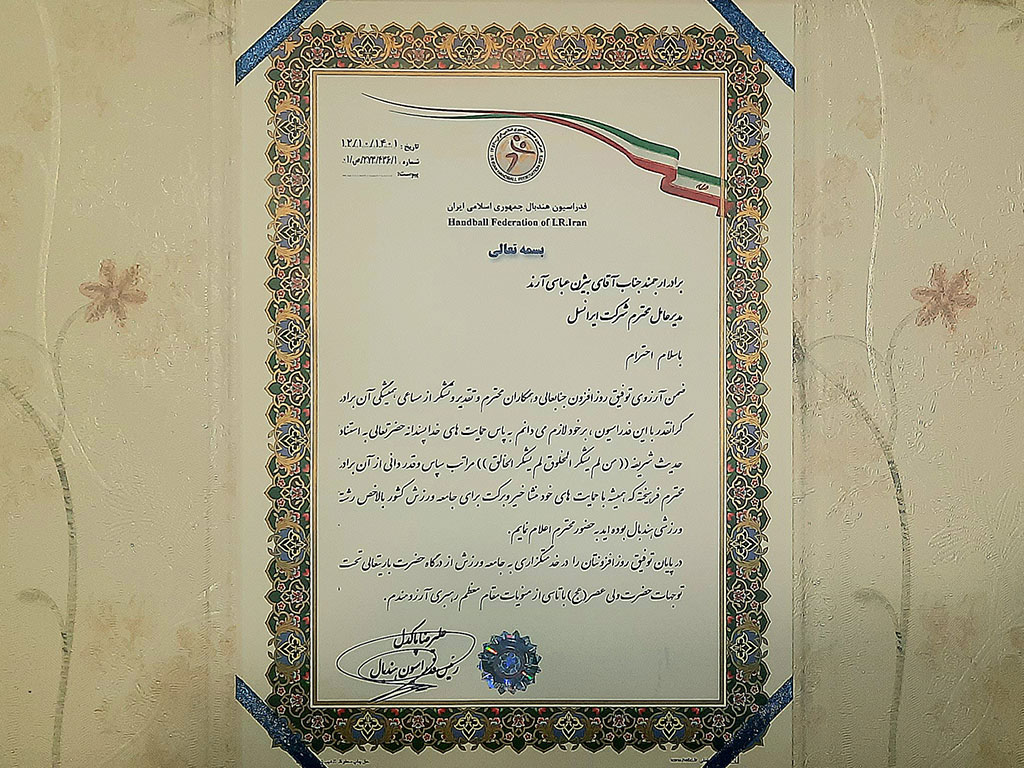 تاریخ: ۱۲/۱۰/۱۴۰۱
شماره: ۰۱/ص/۲۷۳/۴۳۶/۱
پیوست:
فدراسیون هندبال جمهوری اسلامی ایران
Handball Federation of I.R.Iran
بسمه تعالی
برادر ارجمند جناب آقای بیژن عباسی آرند
مدیرعامل محترم شرکت ایرانسل
باسلام احترام
ضمن آرزوی توفیق روزافزون جنابعالی و همکاران محترم و تقدیر و تشکر از مساعی همیشگی آن برادر
گرانقدر با این فدراسیون ، برخود لازم می دانم به پاس حمایت های خداپسندانه حضرتعالی به استناد
حدیث شریفه ((من لم یشکر المخلوق لم یشکر الخالق)) مراتب سپاس و قدردانی از آن برادر
محترم فرهیخته که همیشه با حمایت های خود منشا خیر و برکت برای جامعه ورزش کشور بالاخص رشته
ورزشی هندبال بوده اید به حضور محترم اعلام نمایم.
در پایان توفیق روزافزونتان را در خدمتگزاری به جامعه ورزش از درگاه حضرت باریتعالی تحت
توجهات حضرت ولی عصر (عج) با تاسی از منویات مقام معظم رهبری آرزومندم.
علیرضا پاکدل
رئیس فدراسیون هندبال